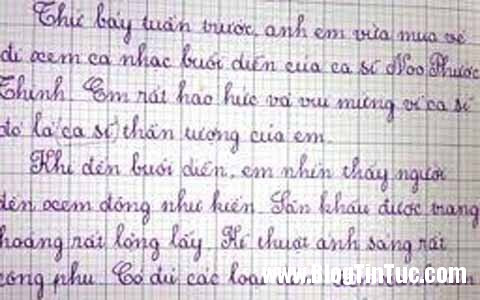 Thứ bảy tuần trước, anh em vừa mua vé
đi xem ca nhạc buổi diễn của ca sĩ Noo Phước
Thịnh. Em rất hào hức và vui mừng vì ca sĩ
đó là ca sĩ thần tượng của em.
Khi đến buổi diễn, em nhìn thấy người
đến xem đông như kiến. Sân khấu được trang
hoàng rất lộng lẫy. Kĩ thuật ánh sáng rất
công phu. Có đủ các loại
www.BlogTinTuc.com